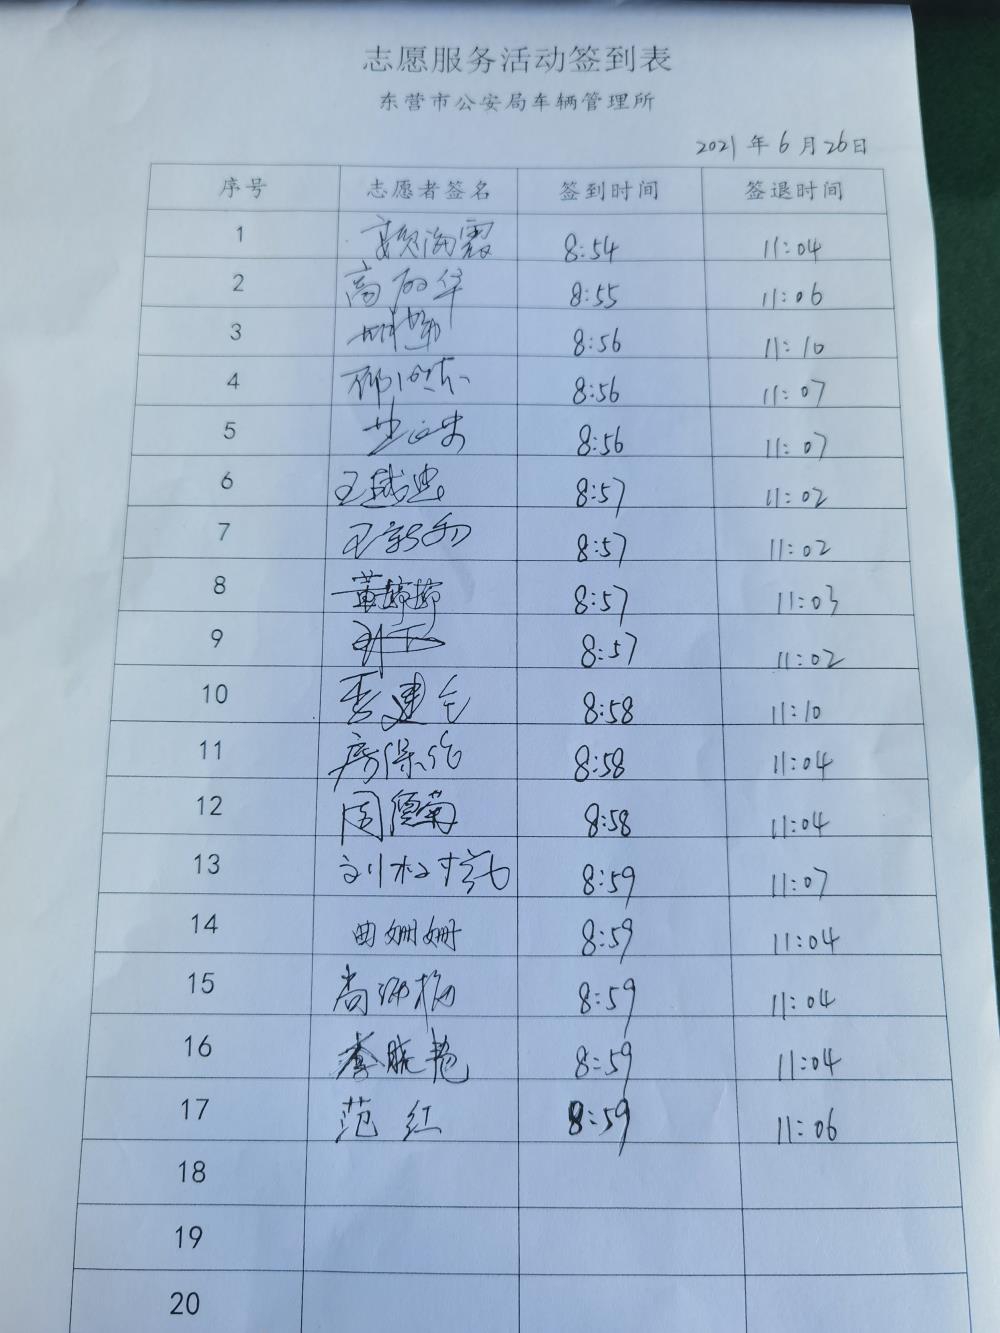 志愿服务活动签到表
东营市公安局车辆管理所
2021年6月26日
序号 志愿者签名 签到时间 签退时间
1 8:54 11:04
2 高丽华 8:55 11:06
3 8:56 11:10
4 8:56 11:07
5 8:56 11:07
6 8:57 11:02
7 王新 8:57 11:02
8 董婷婷 8:57 11:03
9 8:57 11:02
10 李建 8:58 11:10
11 房保 8:58 11:04
12 周 菊 8:58 11:04
13 刘 8:59 11:07
14 曲姗姗 8:59 11:04
15 尚 梅 8:59 11:04
16 李晓艳 8:59 11:04
17 范红 8:59 11:06
18
19
20